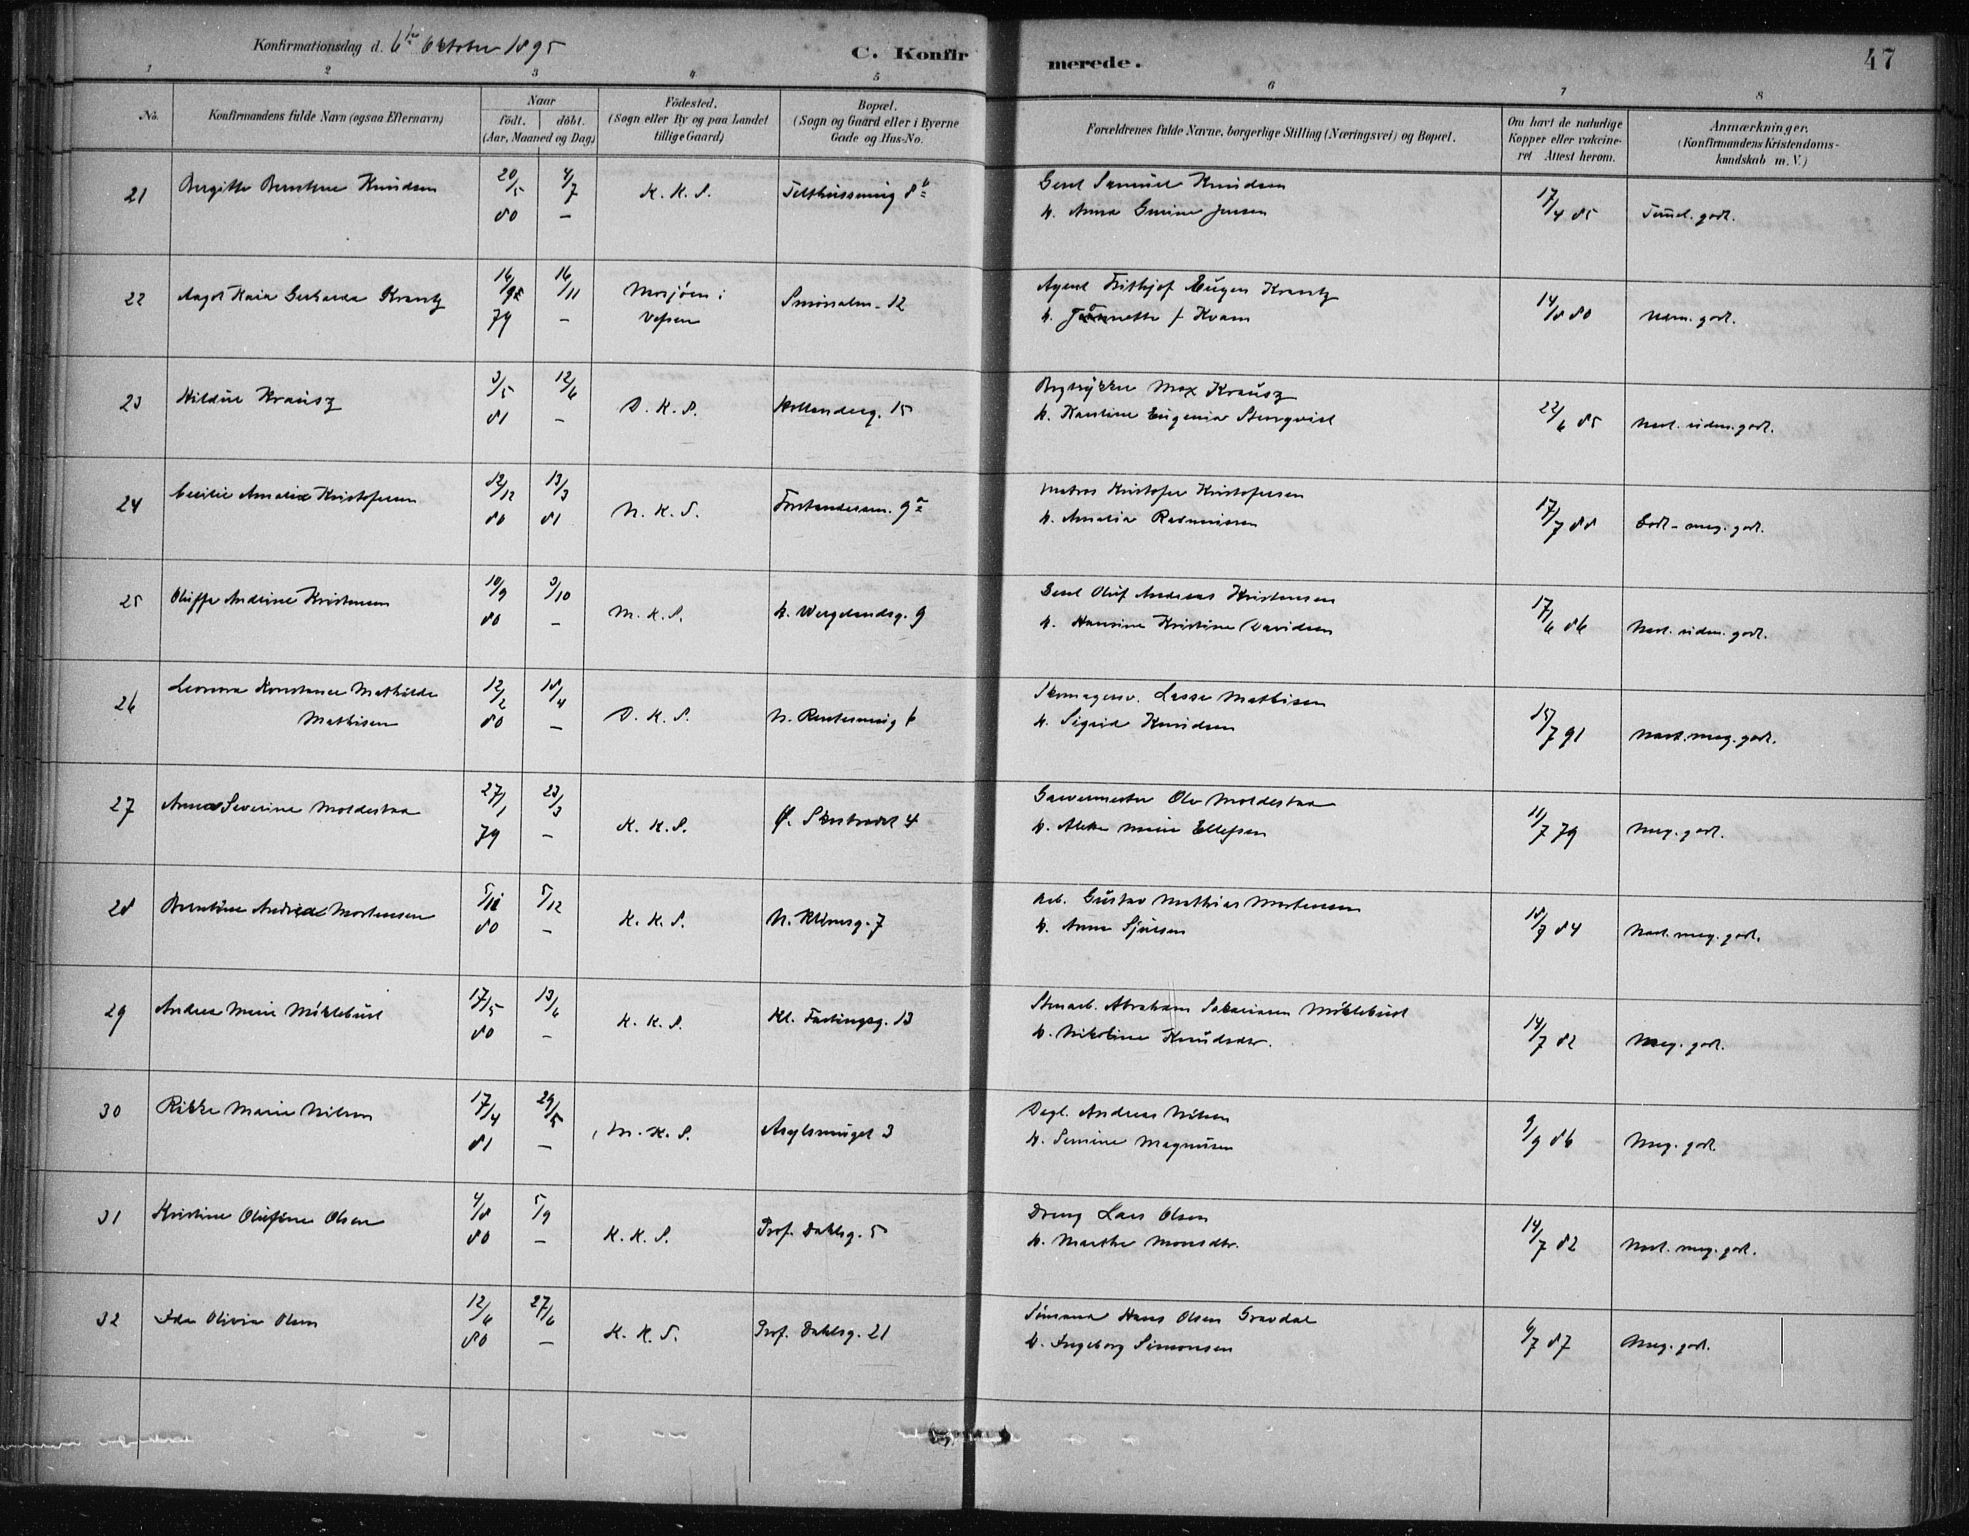 Konfirmationsdag d. 6te Oktober 1895
C. Konfirmerede.
47
1 2 3 4 5 6 7 8
No.
Konfirmandens fulde Navn (ogsaa Efternavn)
Naar
födt. döbt.
(Aar, Maaned og Dag)
Födested.
(Sogn eller By og paa Landet
tillige Gaard)
Bopæl.
(Sogn og Gaard eller i Byerne
Gade og Hus-No.
Forældrenes fulde Navne, borgerlige Stilling (Næringsvei) og Bopæl.
Om havt de naturlige
Kopper eller vakcine-
ret Attest herom.
Anmærkninger.
(Konfirmandens Kristendoms-
kundskab m. V.)
21 Bergitte Berntine Knudsen 20/5 80 4/7 — K. K. S. Telthussmug 8b
Gesel Samuel Knudsen
h. Anna Gurine Jensen
17/4 85 Temel. godt.
22 Aagot Kaia Gerharda Krantz 16/9 79 16/11 — Mosjøen i
Vefsen
Smørsalm. 12
Agent Frithjof Eugen Krantz
h. Jeannette f. Kvam
14/8 80 Udm. godt.
23 Hildur Krausz 3/5 81 12/6 — D. K. S. Hollenderg. 15
Bogtrykker Max Krausz
h. Karoline Eugenia Stenqvist
22/6 85 Næst. udm. godt.
24 Cecilie Amalie Kristofersen 12/12 80 13/3 81 N. K. S. Forstandersm. 9a
Matros Kristofer Kristofersen
h. Amalia Rasmussen
17/7 88 Godt - meg. godt.
25 Oluffa Andrine Kristensen 10/9 80 3/10 — M. K. S. h. Wergelandsg. 9
Gesel Oluf Andreas Kristensen
h. Hansine Kristine Davidsen
17/6 86 Næst. udm. godt.
26 Leonora Konstance Mathilde
Mathisen
12/2 80 18/4 — D. K. S. N. Rentesmug 6
Skomagersv. Lasse Mathisen
h. Sigrid Knudsen
15/7 91 Næst. meg. godt.
27 Anna Severine Moldestaa 27/1 79 23/3 — K. K. S. Ø. Skostradet 4
Garvermester Ole Moldestaa
h. Aletta Marie Ellefsen
11/7 79 Meg. godt.
28 Berntine Andrea Mortensen 5/11 80 5/12 — K. K. S. N. Blekeg. 7
Arb. Gustav Mathias Mortensen
h. Anna Sjursen
18/7 84 Næst. meg. godt.
29 Andrea Marie Möklebust 17/5 80 13/6 — K. K. S. Kl. Fastingsg. 13
Stenarb. Abraham Sakariasen Möklebust
h. Nikoline Knudsdtr.
14/7 82 Meg. godt.
30 Rikke Marie Nilsen 17/4 81 29/5 — M. K. S. Asylsmuget 3
Dagl. Andreas Nilsen
h. Semine Magnusen
9/9 86 Meg. godt.
31 Kristine Olufine Olsen 4/8 80 5/9 — K. K. S. Prof. Dahlsg. 5
Dreng Lars Olsen
h. Marthe Monsdtr.
14/7 82 Næst. meg. godt.
32 Ida Olivia Olsen 12/6 80 27/6 — K. K. S. Prof. Dahlsg. 21
Sömand Hans Olsen Gravdal
h. Ingeborg Simonsen
6/7 87 Meg. godt.